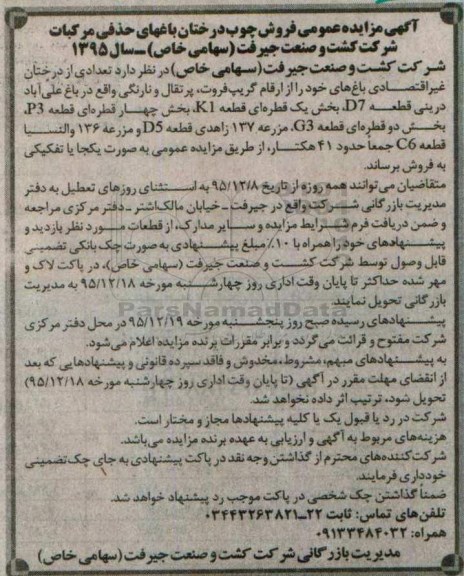 آگهی مزایده عمومی فروش چوب درختان باغهای حذفی مرکبات
شرکت کشت و صنعت جیرفت (سهامی خاص) ــ سال ۱۳۹۵
شرکت کشت و صنعت جیرفت (سهامی خاص) در نظر دارد تعدادی از درختان
غیراقتصادی باغ‌های خود را از ارقام گریپ‌فروت، پرتقال و نارنگی واقع در باغ علی‌آباد
درینی قطعه D7، بخش یک قطره‌ای قطعه K1، بخش چهار قطره‌ای قطعه P3،
بخش دو قطره‌ای قطعه G3، مزرعه ۱۳۷ زاهدی قطعه D5 و مزرعه ۱۳۶ والنسیا
قطعه C6 جمعاً حدود ۴۱ هکتار، از طریق مزایده عمومی به صورت یکجا یا تفکیکی
به فروش برساند.
متقاضیان می‌توانند همه روزه از تاریخ ۹۵/۱۲/۸ به استثنای روزهای تعطیل به دفتر
مدیریت بازرگانی شرکت واقع در جیرفت ـ خیابان مالک‌اشتر ـ دفتر مرکزی مراجعه
و ضمن دریافت فرم شرایط مزایده و سایر مدارک، از قطعات مورد نظر بازدید و
پیشنهادهای خود را همراه با ۱۰٪ مبلغ پیشنهادی به صورت چک بانکی تضمینی
قابل وصول توسط شرکت کشت و صنعت جیرفت (سهامی خاص)، در پاکت لاک و
مهر شده حداکثر تا پایان وقت اداری روز چهارشنبه مورخه ۹۵/۱۲/۱۸ به مدیریت
بازرگانی تحویل نمایند.
ParsNamadData
پیشنهادهای رسیده صبح روز پنجشنبه مورخه ۹۵/۱۲/۱۹ در محل دفتر مرکزی
شرکت مفتوح و قرائت می‌گردد و برابر مقررات برنده مزایده اعلام می‌شود.
به پیشنهادهای مبهم، مشروط، مخدوش و فاقد سپرده قانونی و پیشنهادهایی که بعد
از انقضای مهلت مقرر در آگهی (تا پایان وقت اداری روز چهارشنبه مورخه ۹۵/۱۲/۱۸)
تحویل شود، ترتیب اثر داده نخواهد شد.
شرکت در رد یا قبول یک یا کلیه پیشنهادها مجاز و مختار است.
هزینه‌های مربوط به آگهی و ارزیابی به عهده برنده مزایده می‌باشد.
شرکت‌کننده‌های محترم از گذاشتن وجه نقد در پاکت پیشنهادی به جای چک تضمینی
خودداری فرمایند.
ضمناً گذاشتن چک شخصی در پاکت موجب رد پیشنهاد خواهد شد.
تلفن‌های تماس: ثابت ۲۲ــ۰۳۴۴۳۲۶۳۸۲۱
همراه: ۰۹۱۳۳۴۸۴۰۳۲
مدیریت بازرگانی شرکت کشت و صنعت جیرفت (سهامی خاص)